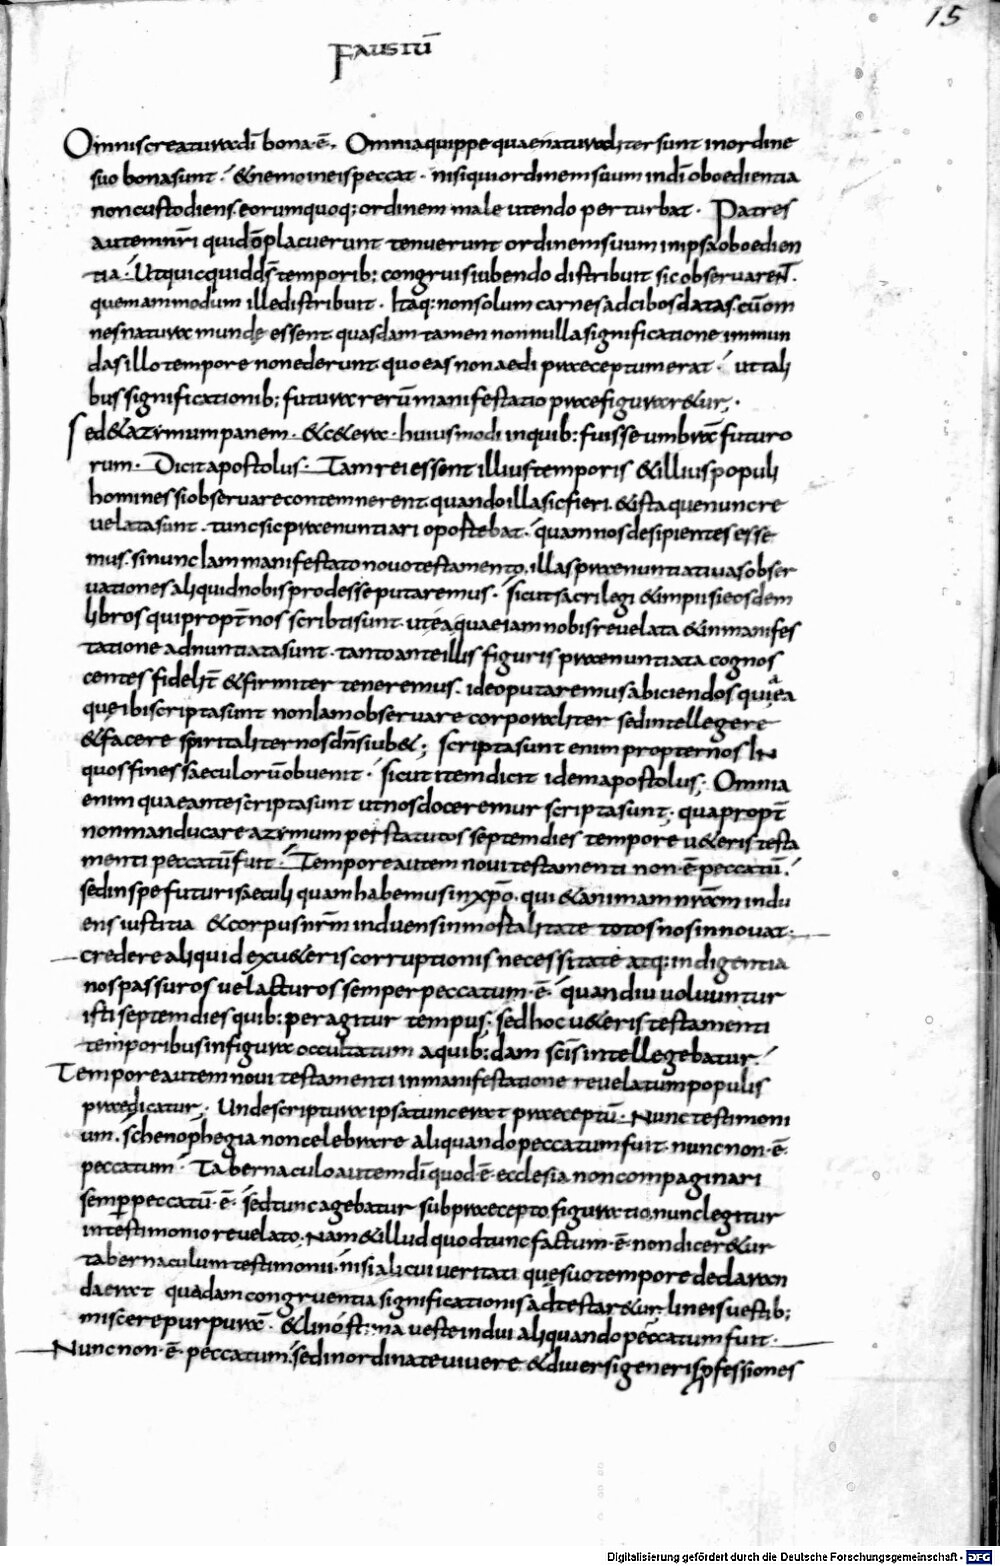 15
FAUSTŪ
Omnis creatura dī bona ·ē· Omnia quippe quae naturaliter sunt in ordine
suo bona sunt · & nemo in eis peccat · nisi qui ordinem suum in dī oboedientia
non custodiens eorum quoq; ordinem male utendo perturbat · Patres
autem nr̄i qui dō placuerunt tenuerunt ordinem suum in ipsa oboedien
tia · Ut quicquid ds̄ temporib; congruis iubendo distribuit sic observarent ·
quemammodum ille distribuit · Itaq; non solum carnes ad cibos datas cū om
nes natura mundę essent quasdam tamen nonnulla significatione inmun
das illo tempore non ederunt quo eas non aedi praeceptum erat · ut tali
bus significationib; futura rerū manifestatio praefigurar&ur ·
Sed & azymum panem · & c&era · huiusmodi in quib; fuisse umbrā futuro
rum · Dicit apostolus · Tam rei essent illius temporis & illius populi
homines si observare contemnerent quando illa sic fieri · & ista que nunc re
velata sunt · tunc sic praenuntiari oportebat · quam nos desipientes esse
mus · si nunc iam manifestato novo testamento illas praenuntiativas obser
vationes aliquid nobis prodesse putaremus · sicut sacrilegi & impii si eosdem
libros qui propt̄ nos scribti sunt ut ea quae iam nobis revelata & in manifes
tatione adnuntiata sunt · tanto ante illis figuris praenuntiata cognos
centes fidelit̄ & firmiter teneremus · ideo putaremus abiciendos quia ea
quę ibi scripta sunt non iam observare corporaliter sed intellegere
& facere spiritaliter nos dn̄s iub&; scripta sunt enim propter nos in
quos fines saeculorū obvenit · sicut item dicit idem apostolus; Omnia
enim quae ante scripta sunt ut nos doceremur scripta sunt · quapropt̄
non manducare azymum per statutos septem dies tempore v&eris testa
menti peccatū fuit · Tempore autem novi testamenti non ·ē· peccatū ·
sed in spe futuri saeculi quam habemus in xp̄o · qui & animam nr̄am indu
ens iustitia & corpus nr̄m induens inmortalitate totos nos innovat ·
credere aliquid ex v&eris corruptionis necessitate atq; indigentia
nos passuros vel acturos semper peccatum ·ē· quandiu voluuntur
isti septem dies quib; peragitur tempus · sed hoc v&eris testamenti
temporibus in figura occultatum a quib;dam scīs intellegebatur ·
Tempore autem novi testamenti in manifestatione revelatum populis
praedicatur · Unde scriptura ipsa tunc erat praeceptū · Nunc testimoni
um · schenophegia non celebrare aliquando peccatum fuit · nunc non ·ē·
peccatum · Tabernaculo autem dī quod ·ē· ecclesia non compaginari
semper peccatū ·ē· sed tunc agebatur sub praecepto figurato nunc legitur
in testimonio revelato · Nam & illud quod tunc factum ·ē· non dicer&ur
tabernaculum testimonii · nisi alicui veritati quę suo tempore declaran
da erat quadam congruentia significationis adtestar&ur · lineis vestib;
miscere purpurā · & lino stima veste indui aliquando peccatum fuit ·
Nunc non ·ē· peccatum · sed inordinate vivere & diversi generis p̄fessiones
Digitalisierung gefördert durch die Deutsche Forschungsgemeinschaft - DFG